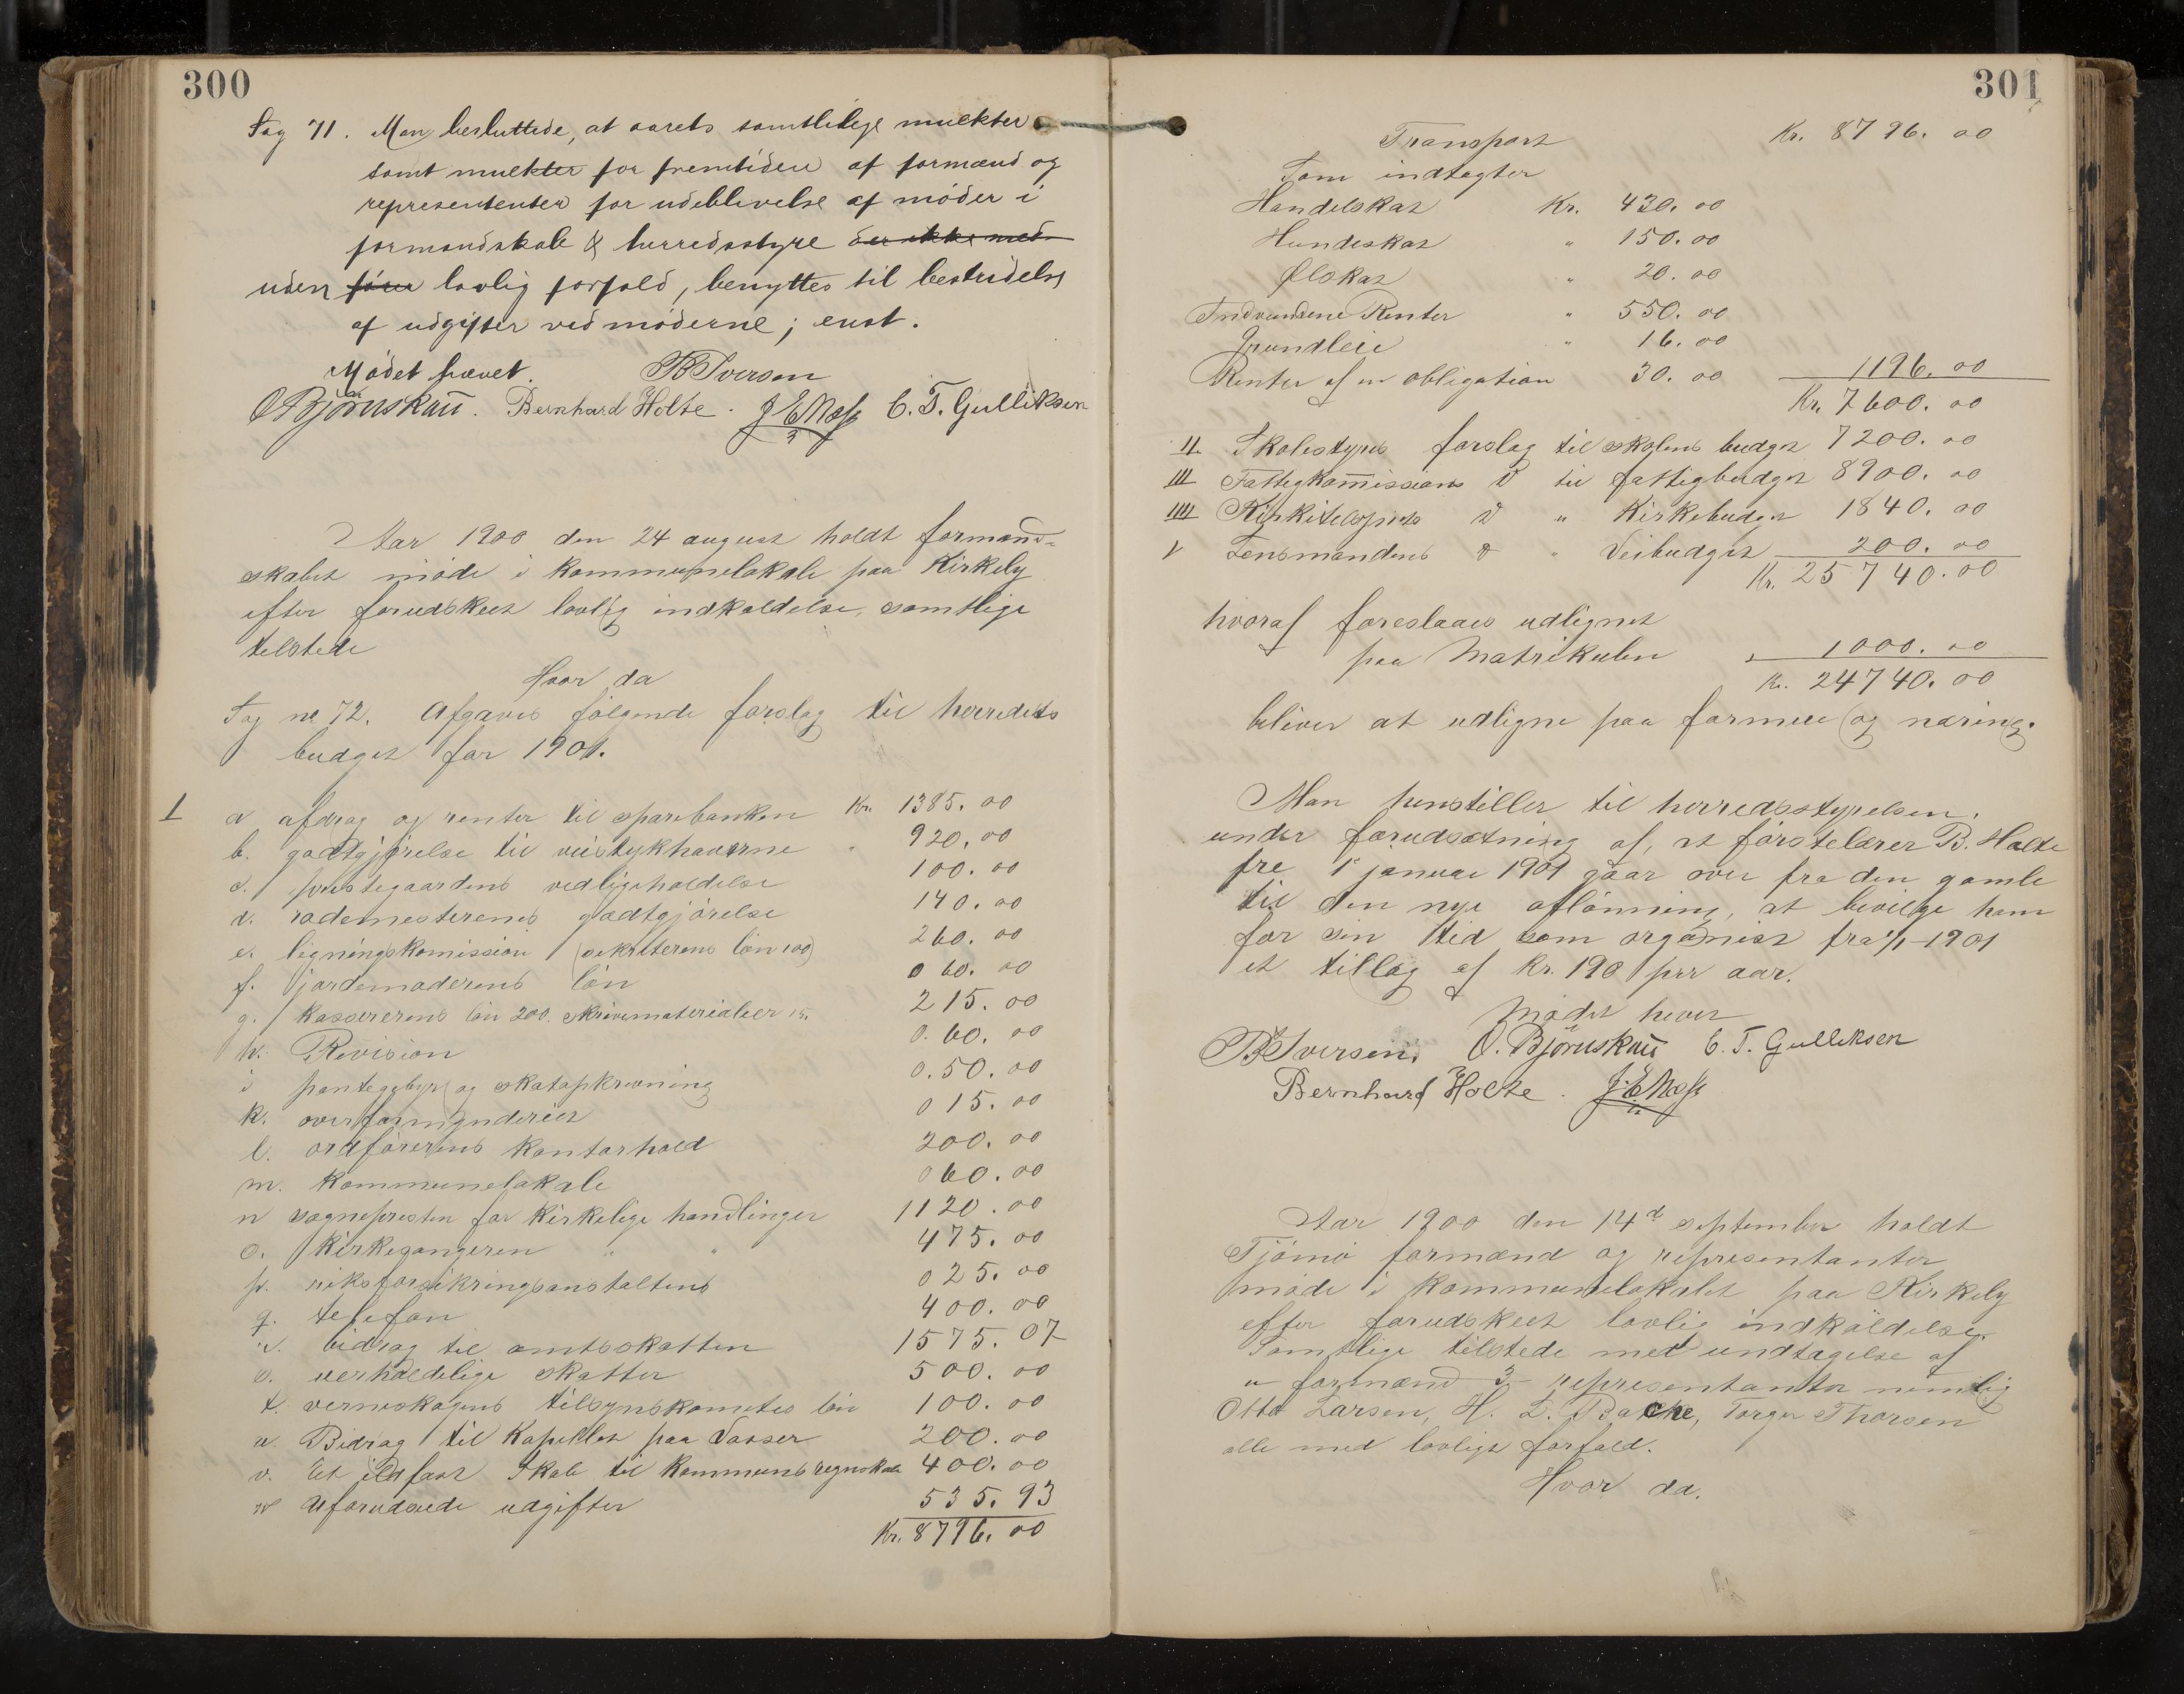 300
Sag 71. Man besluttede, at aarets samtlilige mulkter
samt mulkter for fremtiden af formænd og
represententer for udeblivelse af möder i
formandskab & herredsstyre der ikke med
uden förer lovlig forfald, benyttes til bestridelse
af udgifter ved möderne; enst.
Mödet hævet. B Iversen
O Björnskau. Bernhard Holte. J E Næss C. T. Gulliksen
Aar 1900 den 24 august holdt formand-
skabet möde i kommunelokale paa Kirkely
efter forudskeet lovlig indkaldelse, samtlige
tilstede
Hvor da
Sag nr 72. Afgaves fölgende forslag til herredets
budget for 1901.
I a afdrag og renter til sparebanken Kr. 1385.00
b. godtgjörelse til veistykhaverne " 920.00
c. prestegaardens vedligeholdelse 100.00
d. rodemesterenes godtgjörelse 140.00
e. ligningskomission (sekreterens lön 100) 260.00
f. jordemoderens lön 060.00
g. kassererens lön 200. skrivematerialier 15. 215.00
h. Revision 0.60.00
i pantegebyr og skatopkrævning 0.50.00
k. overformynderiet 015.00
l. ordförerens kontorhold 200.00
m. kommunelokale 060.00
n sognepresten for kirkelige handlinger 1120.00
o. kirkesangeren " " 475.00
p. riksforsikringsanstaltens 025.00
q. telefon 400.00
r. bidrag til amtsskatten 1575.07
s. uerholdelige skatter 500.00
t. verneskogens tilsynskomites lön 100.00
u. Bidrag til Kapellet paa Sasser 200.00
v. Et ildfast Skab til kommunes regnskab 400.00
w Uforudseede udgifter 535.93
Kr. 8796.00
301
Transport Kr. 8796.00
Som indtægter
Handelskat Kr. 430.00
Hundeskat " 150.00
Ølskat " 20.00
Indvundene Renter " 550.00
Grundleie " 16.00
Renter af en obligation 30.00 1196.00
Kr. 7600.00
II Skolestyres forslag til skolens budget 7200.00
III Fattigkommissions D til fattigbudget 8900.00
IIII Kirketilsynets D " Kirkebudget 1840.00
V Lensmandens D " Veibudget 200.00
Kr. 25740.00
hvoraf foreslaaes udlignet
paa Matrikulen " 1000.00
Kr. 24740.00
bliver at udligne paa formue og næring.
Man henstiller til herredsstyrelsen,
under forudsætning af, at förstelærer B. Holte
fra 1ste januar 1901 gaar over fra den gamle
til den nye aflönning, at bevilge ham
for sin tid som organist fra 1/1-1901
et tillæg af kr. 190 per aar.
Mödet hevet
B Iversen. O. Björnskau C. T. Gulliksen
Bernhard Holte. J. E. Næss
Aar 1900 den 14de september holdt
Tjömö formænd og representanter
möde i kommunelokalet paa Kirkely
efter forudskeet lovlig indkaldelse.
Samtlige tilstede med undtagelse af
formænd 3 representanter nemlig
Otto Larsen, H. L. Bache, Torger Thorsen
alle med lovlige forfald.
Hvor da.